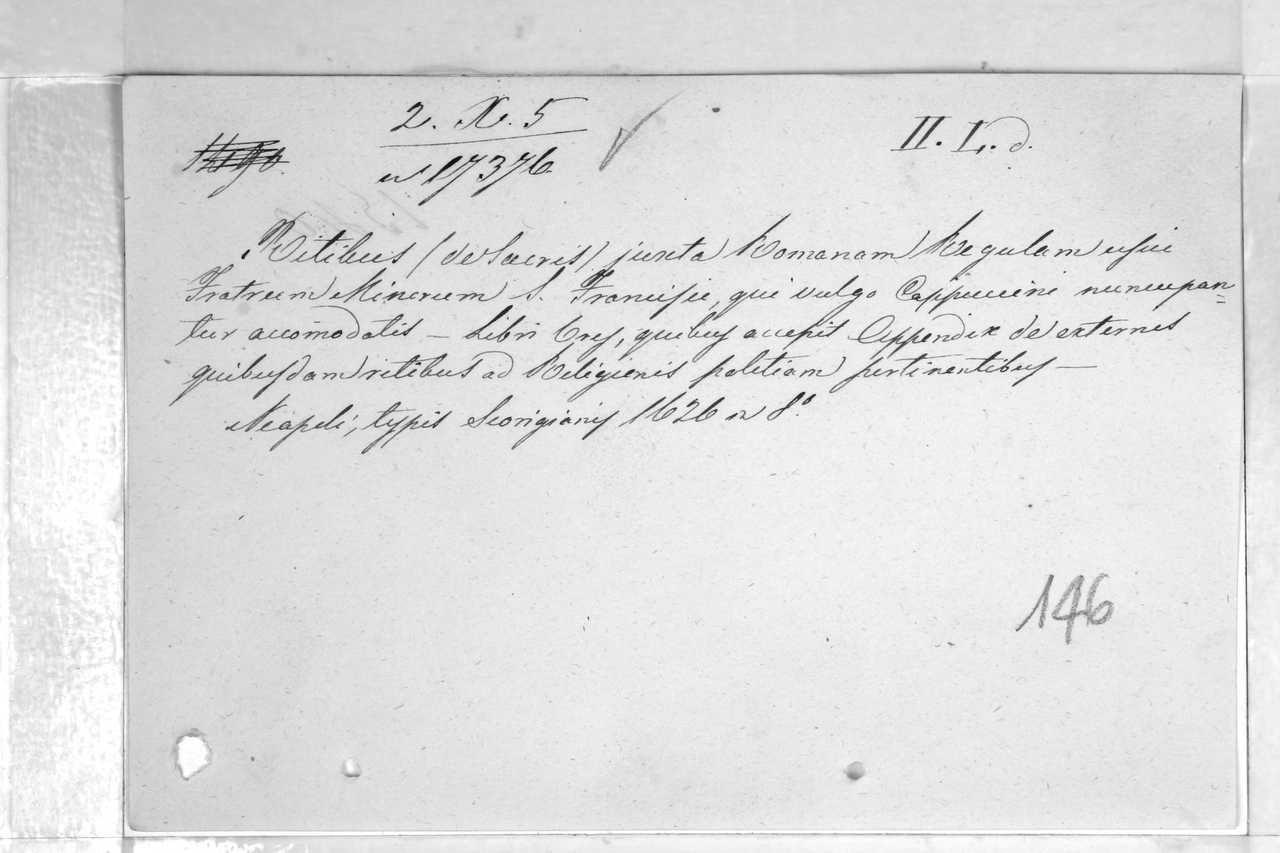 2. X. 5
II. L. d.
n 17376
Ritibus (de Sacris) juxta Romanam Regulam usui
Fratrum Minorum S. Francisci, qui vulgo Cappuccini nuncupan=
tur accomodatis — Libri tres, quibus accepit Appendix de externis
quibusdam ritibus ad Religionis politiam pertinentibus —
Neapoli, typis Scorigianis 1626 in 8.º
146